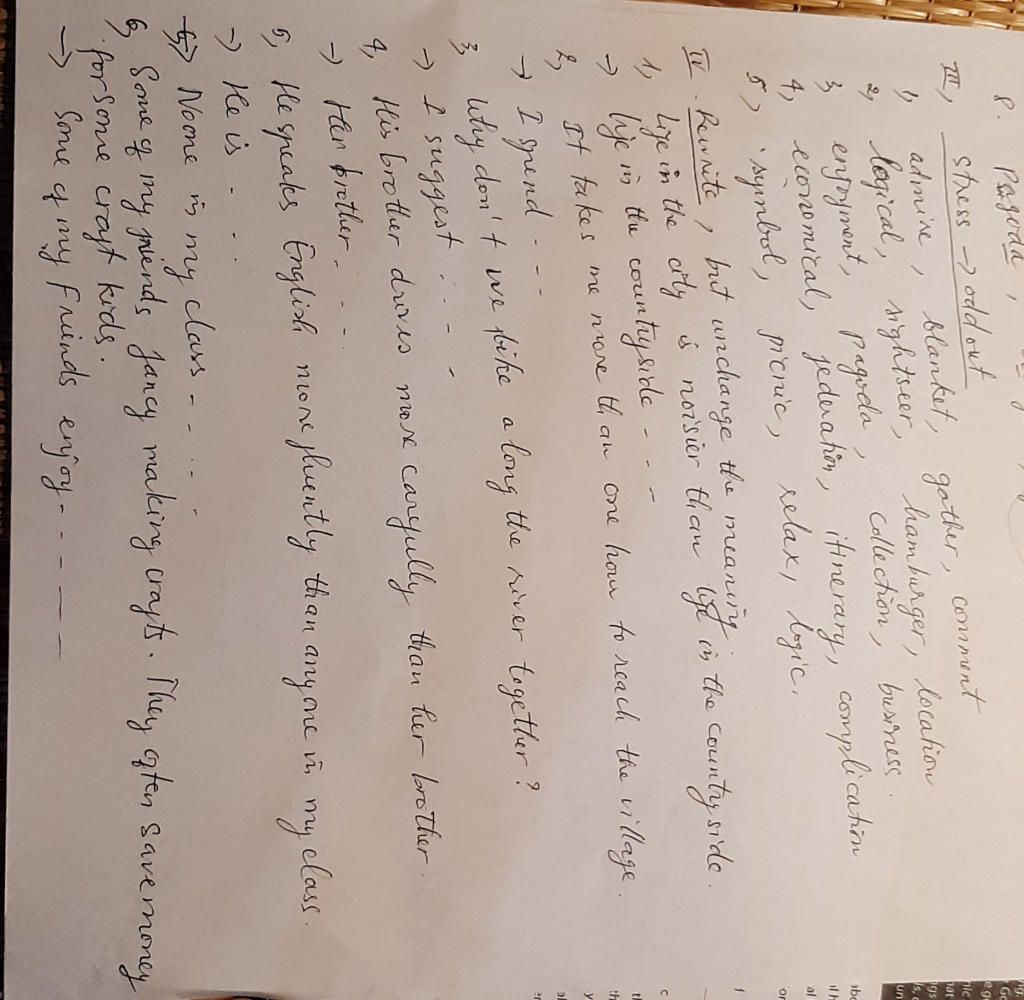 8. pagoda,
III, stress → odd out
1, admire, blanket, gather, comment
2, logical, sightseer, hamburger, location
3, enjoyment, pagoda, collection, business.
4, economical, federation, itinerary, complication
5, symbol, picnic, relax, logic.
IV. Rewrite, but unchange the meaning
1, Life in the city is noisier than life in the countryside.
→ life in the countryside - - -
2, It takes me more than one hour to reach the village.
→ I spend - - -
3, Why don't we hike along the river together?
→ I suggest - - - -
4, His brother drives more carefully than her brother.
→ Her brother - - - -
5, He speaks English more fluently than anyone in my class.
→ He is - - -
→ No one in my class - - - - -
6, Some of my friends fancy making crafts. They often save money
for some craft kids.
→ Some of my friends enjoy - - - - -